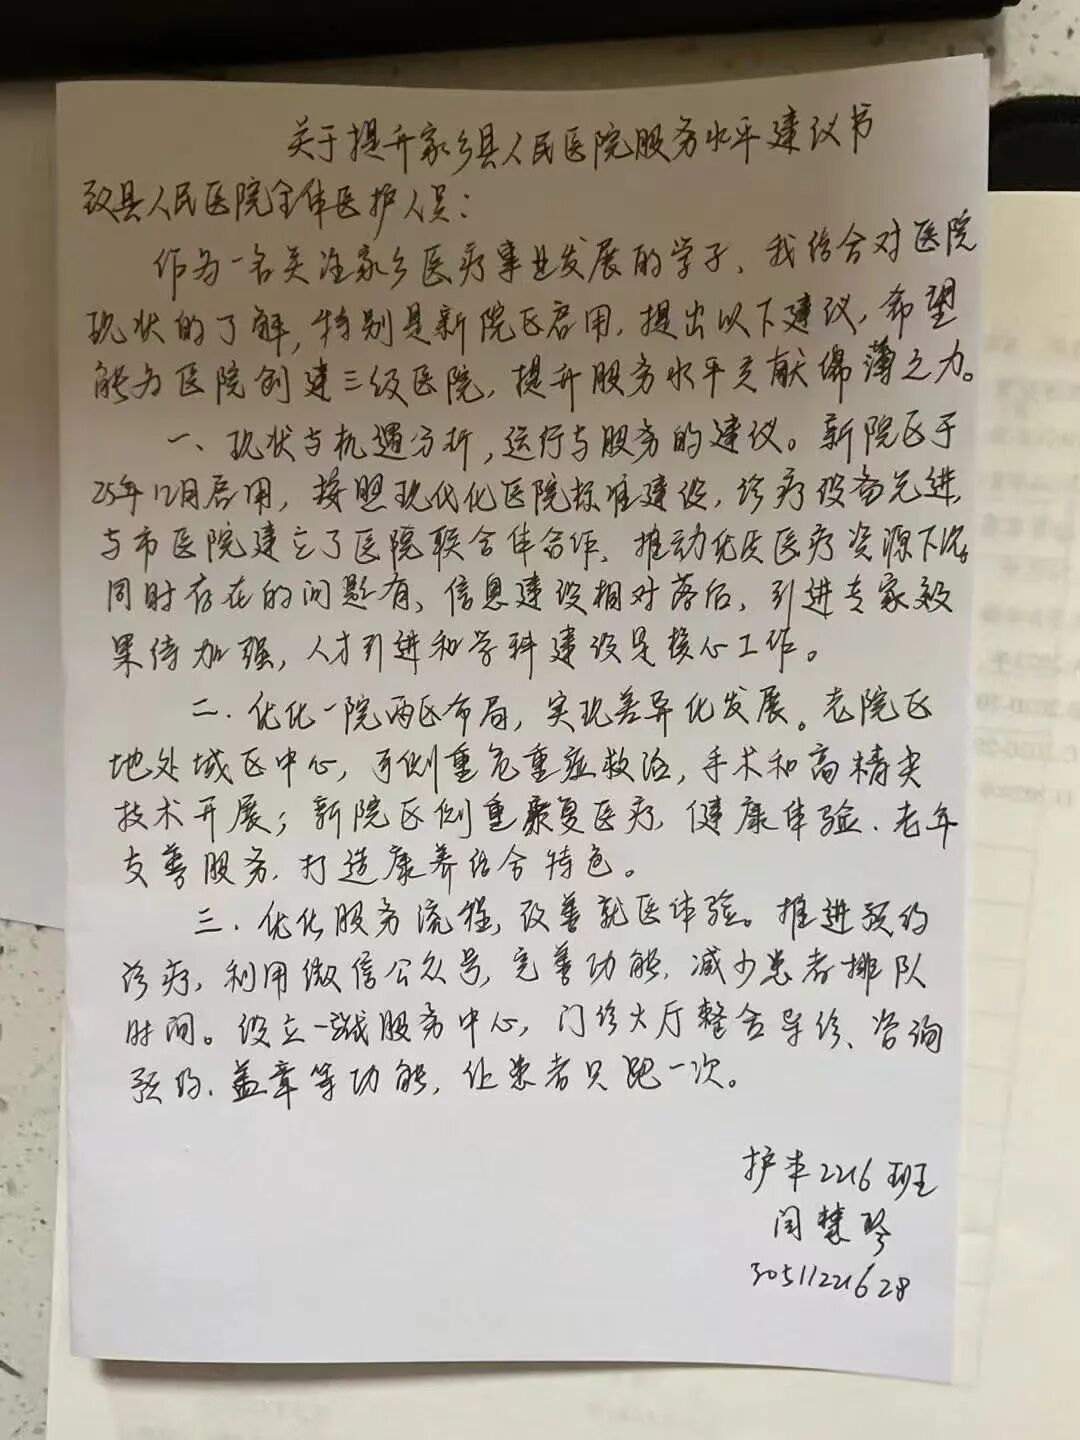 关于提升家乡县人民医院服务水平建议书
致县人民医院全体医护人员：
作为一名关注家乡医疗事业发展的学子、我结合对医院
现状的了解，特别是新院区启用，提出以下建议，希望
能为医院创建三级医院，提升服务水平贡献绵薄之力。
一、现状与机遇分析，运行与服务的建议。新院区于
25年12月启用，按照现代化医院标准建设，诊疗设备先进，
与市医院建立了医院联合体合作，推动优质医疗资源下沉。
同时存在的问题有、信息建设相对落后，引进专家效
果待加强，人才引进和学科建设是核心工作。
二．优化一院两区布局，实现差异化发展。老院区
地处城区中心，可侧重危重症救治，手术和高精尖
技术开展；新院区侧重康复医疗，健康体验、老年
友善服务，打造康养结合特色。
三．优化服务流程，改善就医体验。推进预约
诊疗，利用微信公众号，完善功能，减少患者排队
时间。设立一站服务中心，门诊大厅整合导诊、咨询
预约、盖章等功能，让患者只跑一次。
护本2216班
闫慧琴
30511221628